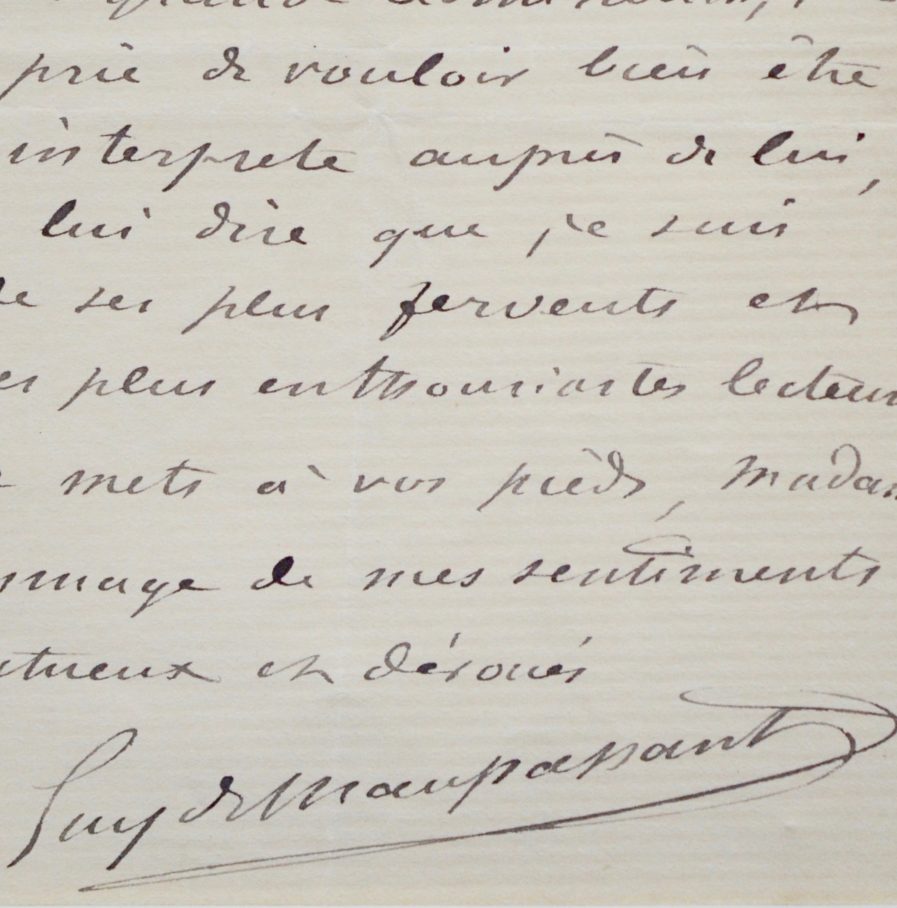 prie de vouloir bien être
interprete auprès de lui,
lui dire que je suis
de ses plus fervents et
plus enthousiastes lecteurs
mets à vos pieds, Madam
mmage de mes sentiments
ctueux et dévoués
Guy de Maupassant